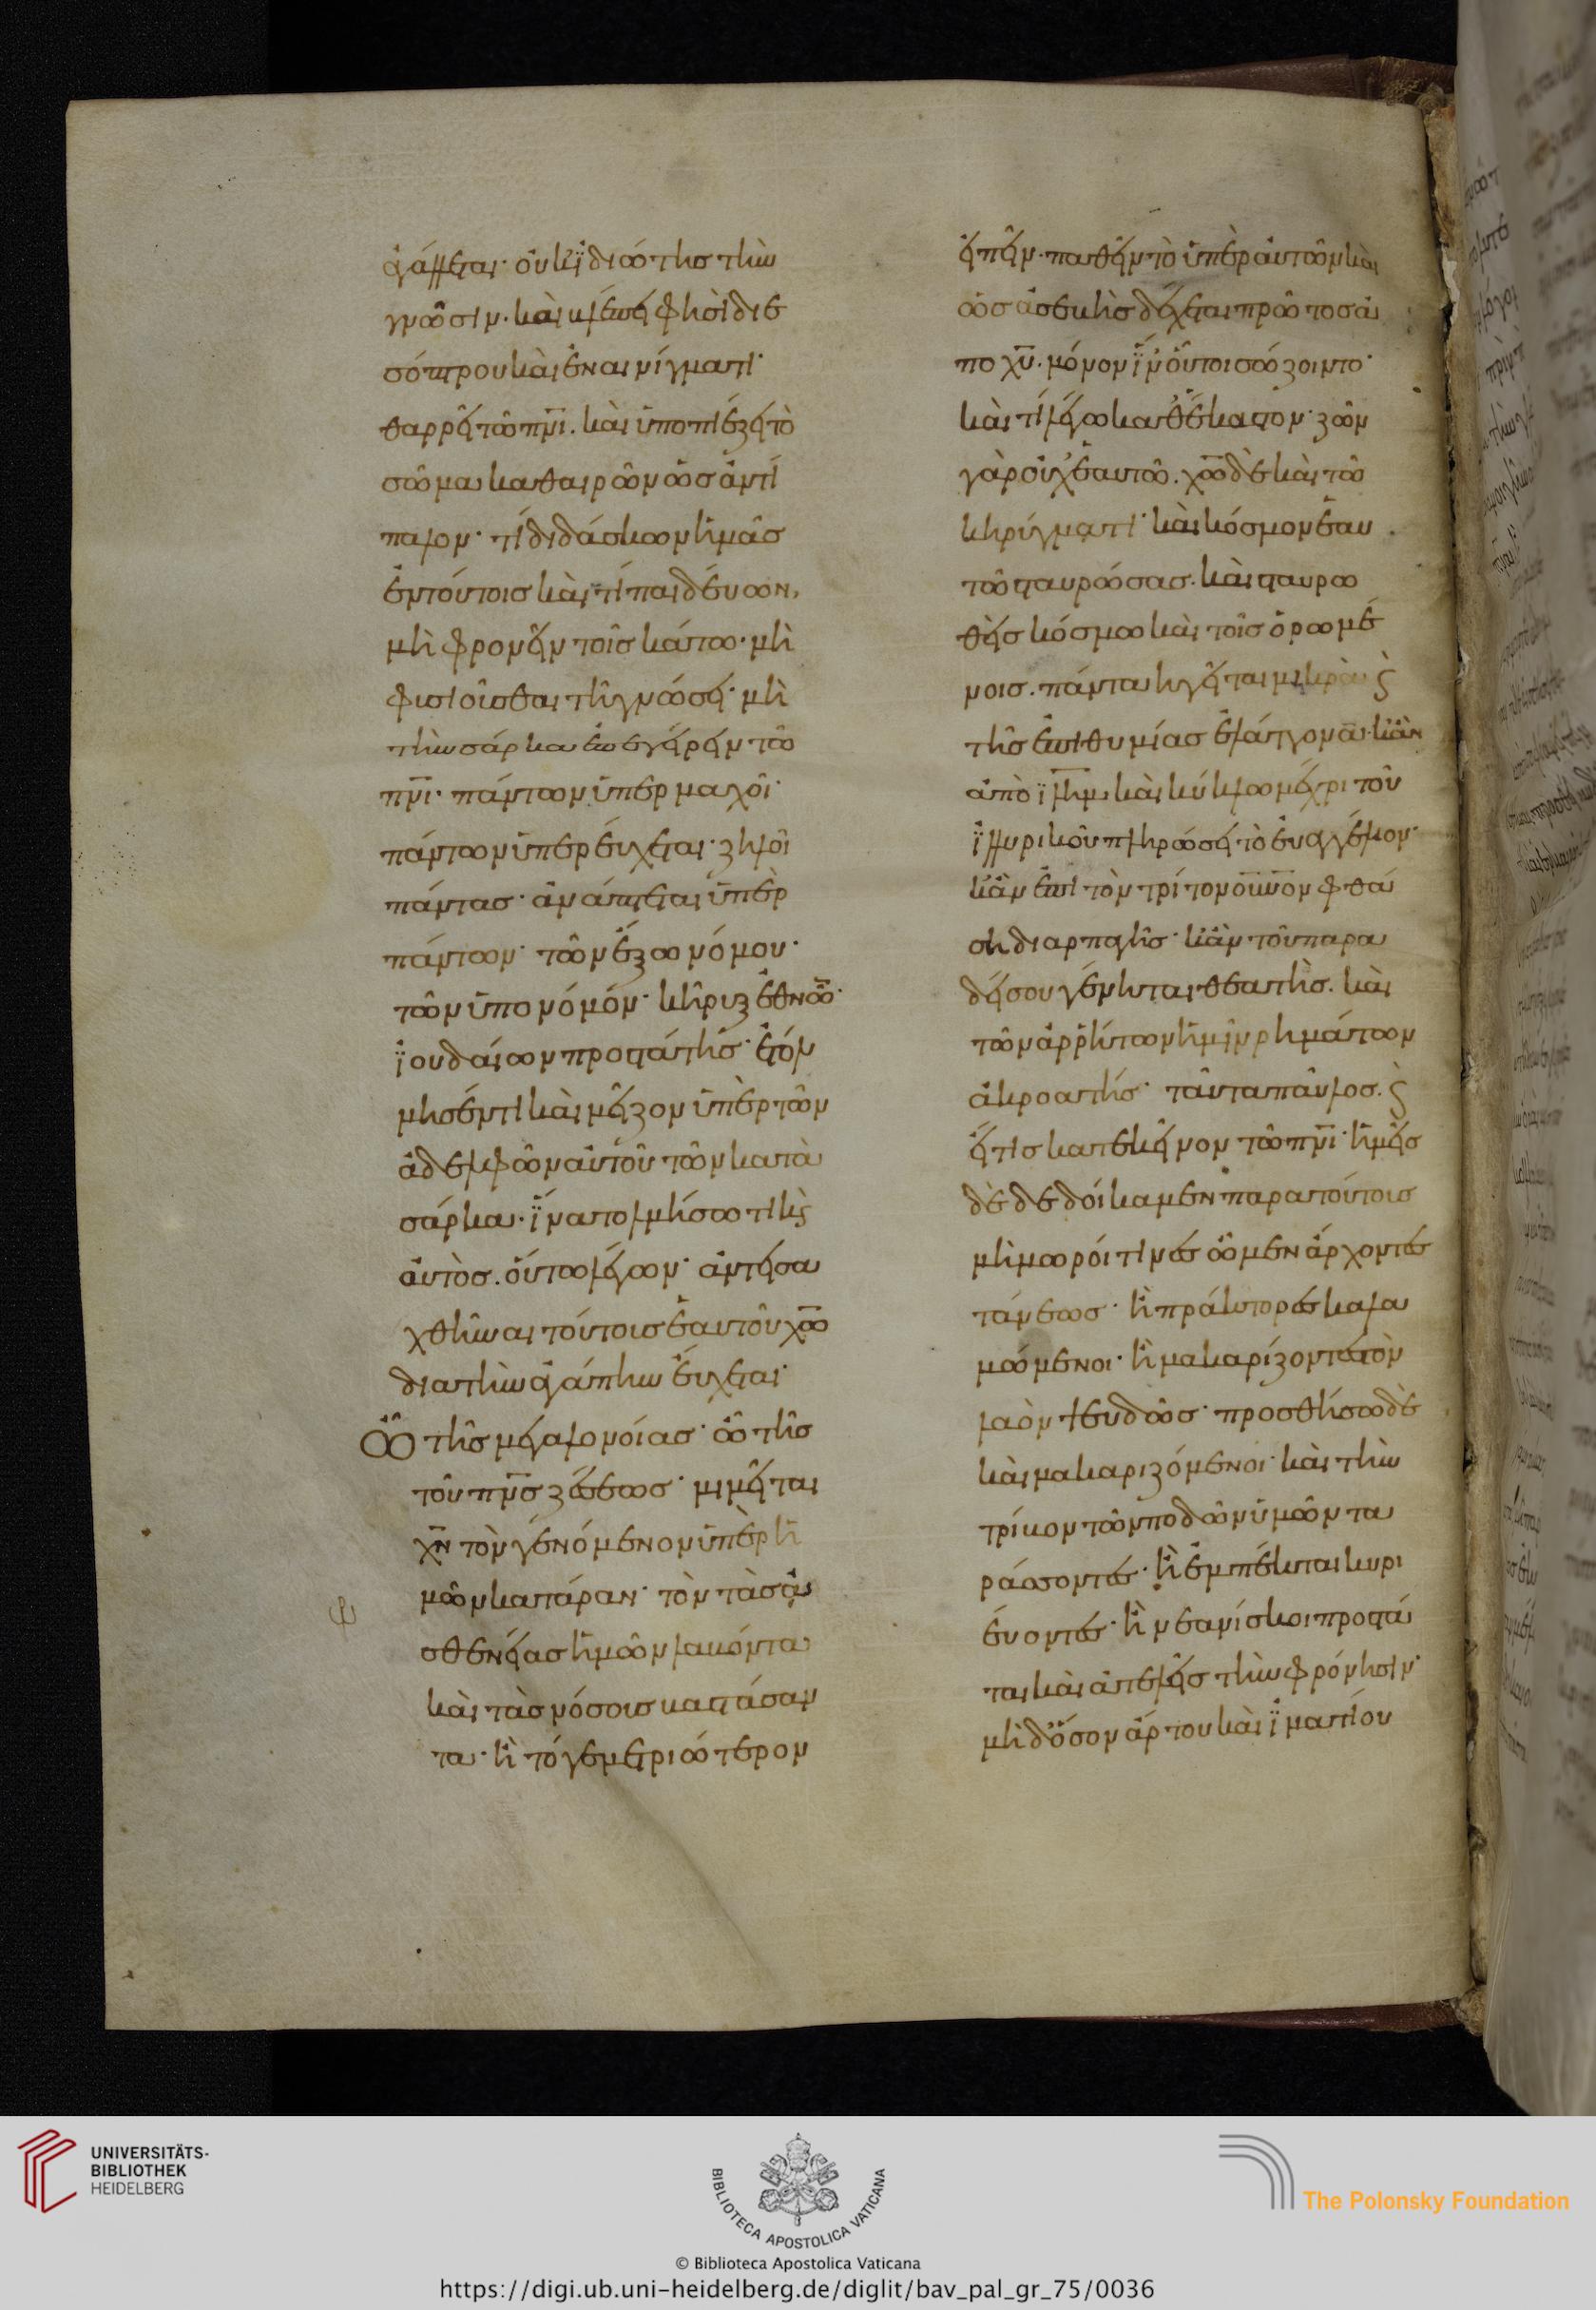 ἀγάλλεται· οὐκ ϊδιώτης τὴν
γνῶσιν· καὶ βλέπει φησὶ δι ἐ
σόπτρου καὶ ἐν αινίγματι·
θαρρεῖ τῶ πνι̅· καὶ ὑποπιέζει τὸ
σῶμα καθαιρῶν ὡς ἀντί
παλον· τί διδάσκων ἡμᾶς
ἐν τούτοις καὶ τί παιδεύων,
μὴ φρονεῖν τοῖς κάτω· μὴ
φισιοῖσθαι τῆ γνώσει· μὴ
τὴν σάρκα ἐπεγείρειν τῶ
πνι̅· πάντων ὑπερμαχοῖ·
πάντων ὑπερεύχεται· ζηλοῖ
πάντας· ἀνάπτεται ὑπὲρ
πάντων· τῶν ἔξω νόμου·
τῶν ὑπο νόμον· κῆριξ ἐθνῶν·
ϊουδαίων προστάτης· ἐτόλ
μησέν τι καὶ μεῖζον ὑπὲρ τῶν
ἀδελφῶν αὐτοῦ τῶν κατὰ
σάρκα· ΐνα τολμήσω τι κς̀
αὐτὸς οὕτω λέγων· ἀντεισα
χθῆναι τούτοις ἑαυτοῦ χω̅
δια τὴν ἀγάπην εὔχεται·
Ὢ τῆς μεγαλονοίας· ὢ τῆς
τοῦ πνς̅ ζέσεως· μιμεῖται
χν̅ τὸν γενόμενον ὑπὲρ ἡ
μῶν κατάραν· τὸν τὰς ἀ
σθενείας ἡμῶν λαβόντα
καὶ τὰς νόσοις βαστάσαν
τα· ἢ τό γε μετριώτερον
εἰπεῖν· παθεῖν τὸ ὑπὲρ αὐτῶν καὶ
ὡς ἀσεβὴς δέχεται πρῶτος ἀ
πο χυ̅· μόνον ΐν οὗτοι σώζοιντο·
καὶ τί λέγω καθέκαστον· ζῶν
γὰρ οὐχ ἑαυτῶ· χω̅ δὲ καὶ τῶ
κηρύγματι· καὶ κόσμον ἑαυ
τῶ σταυρώσας· καὶ σταυρω
θεὶς κόσμω καὶ τοῖς ὁρωμέ
νοις· πάντα ἡγεῖται μικρὰ ς̀
τῆς ἐπιθυμίας ἐλάττονα· κἂν
ἀπὸ ϊλ̅η̅μ̅ καὶ κύκλω μέχρι τοῦ
ϊλλυρικοῦ πληρώσει τὸ εὐαγγέλιον·
κἂν ἐπὶ τὸν τρίτον ου̅νο̅ν φθά
ση διαρπαγῆς· κἂν τοῦ παρα
δείσου γένηται θεατὴς· καὶ
τῶν ἀρρήτων ἡμῖν ρημάτων
ἀκροατής· ταῦτα παῦλος· ς̀
εἴ τις κατεκεῖνον τῶ πνι̅· ἡμεῖς
δὲ δεδοίκαμεν παρα τούτοις
μὴ μωροί τινές ὦμεν ἄρχοντές
τάνεως· ἢ πράκτορές καλα
μώμενοι· ἢ μακαρίζοντές τὸν
λαὸν ψευδῶς· προσθήσω δὲ
καὶ μακαριζόμενοι· καὶ τὴν
τρίβον τῶν ποδῶν ὑμῶν τα
ράσσοντές· ἢ ἐμπέκται κυρι
εύοντές· ἢ νεανίσκοι προστά
ται καὶ ἀτελεῖς τὴν φρόνησιν·
μὴ δ ὅσον ἄρτου καὶ ϊματίου
UNIVERSITÄTS-
BIBLIOTHEK
HEIDELBERG
BIBLIOTECA APOSTOLICA VATICANA
The Polonsky Foundation
© Biblioteca Apostolica Vaticana
https://digi.ub.uni-heidelberg.de/diglit/bav_pal_gr_75/0036